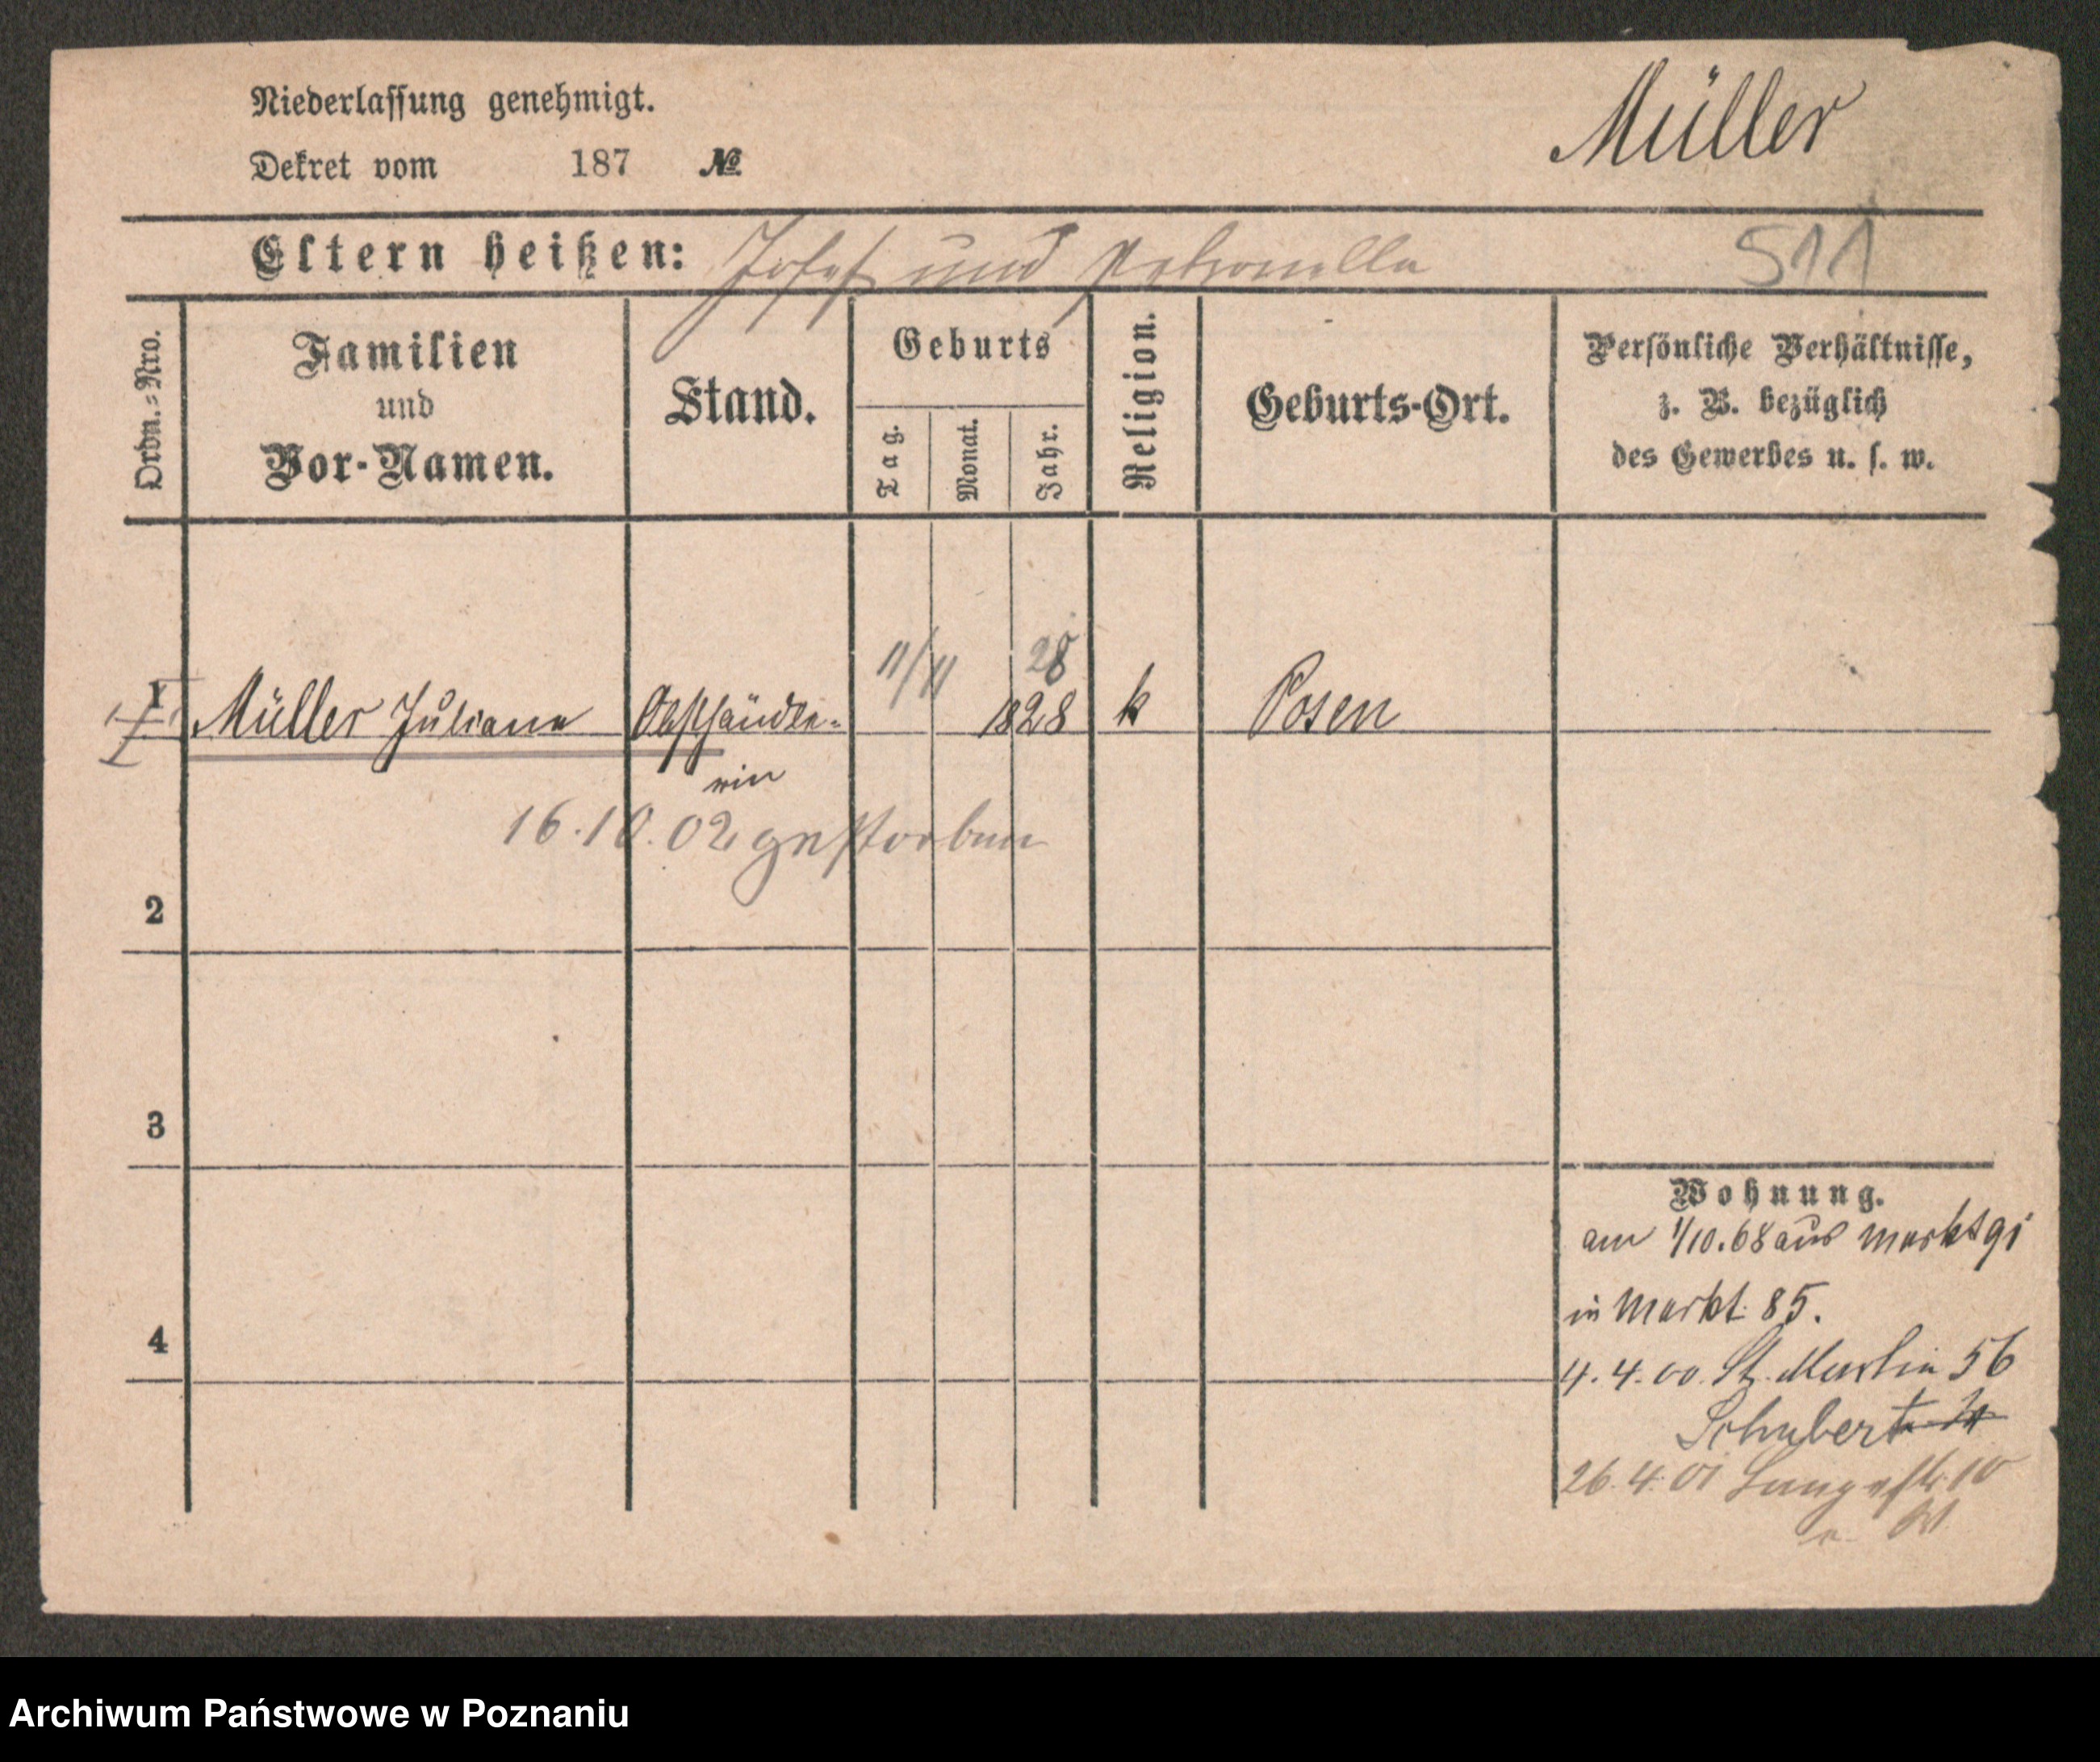 Niederlassung genehmigt.
Dekret vom 187 №
Müller
Eltern heißen: Josef und Petronella
511
Ordn.-Nro.
Familien
und
Vor-Namen.
Stand.
Geburts
Tag.
Monat.
Jahr.
Religion.
Geburts-Ort.
Persönliche Verhältnisse,
z. B. bezüglich
des Gewerbes u. s. w.
28
1 Müller Juliane Obsthändle- 11/11 1828 k Posen
rin
16.10.02 gestorben
2
3
4
Wohnung.
am 1/10.68 aus Markt 91
in Markt 85.
4.4.00. St. Martin 56
Schubert
26.4.01 Langestr. 10